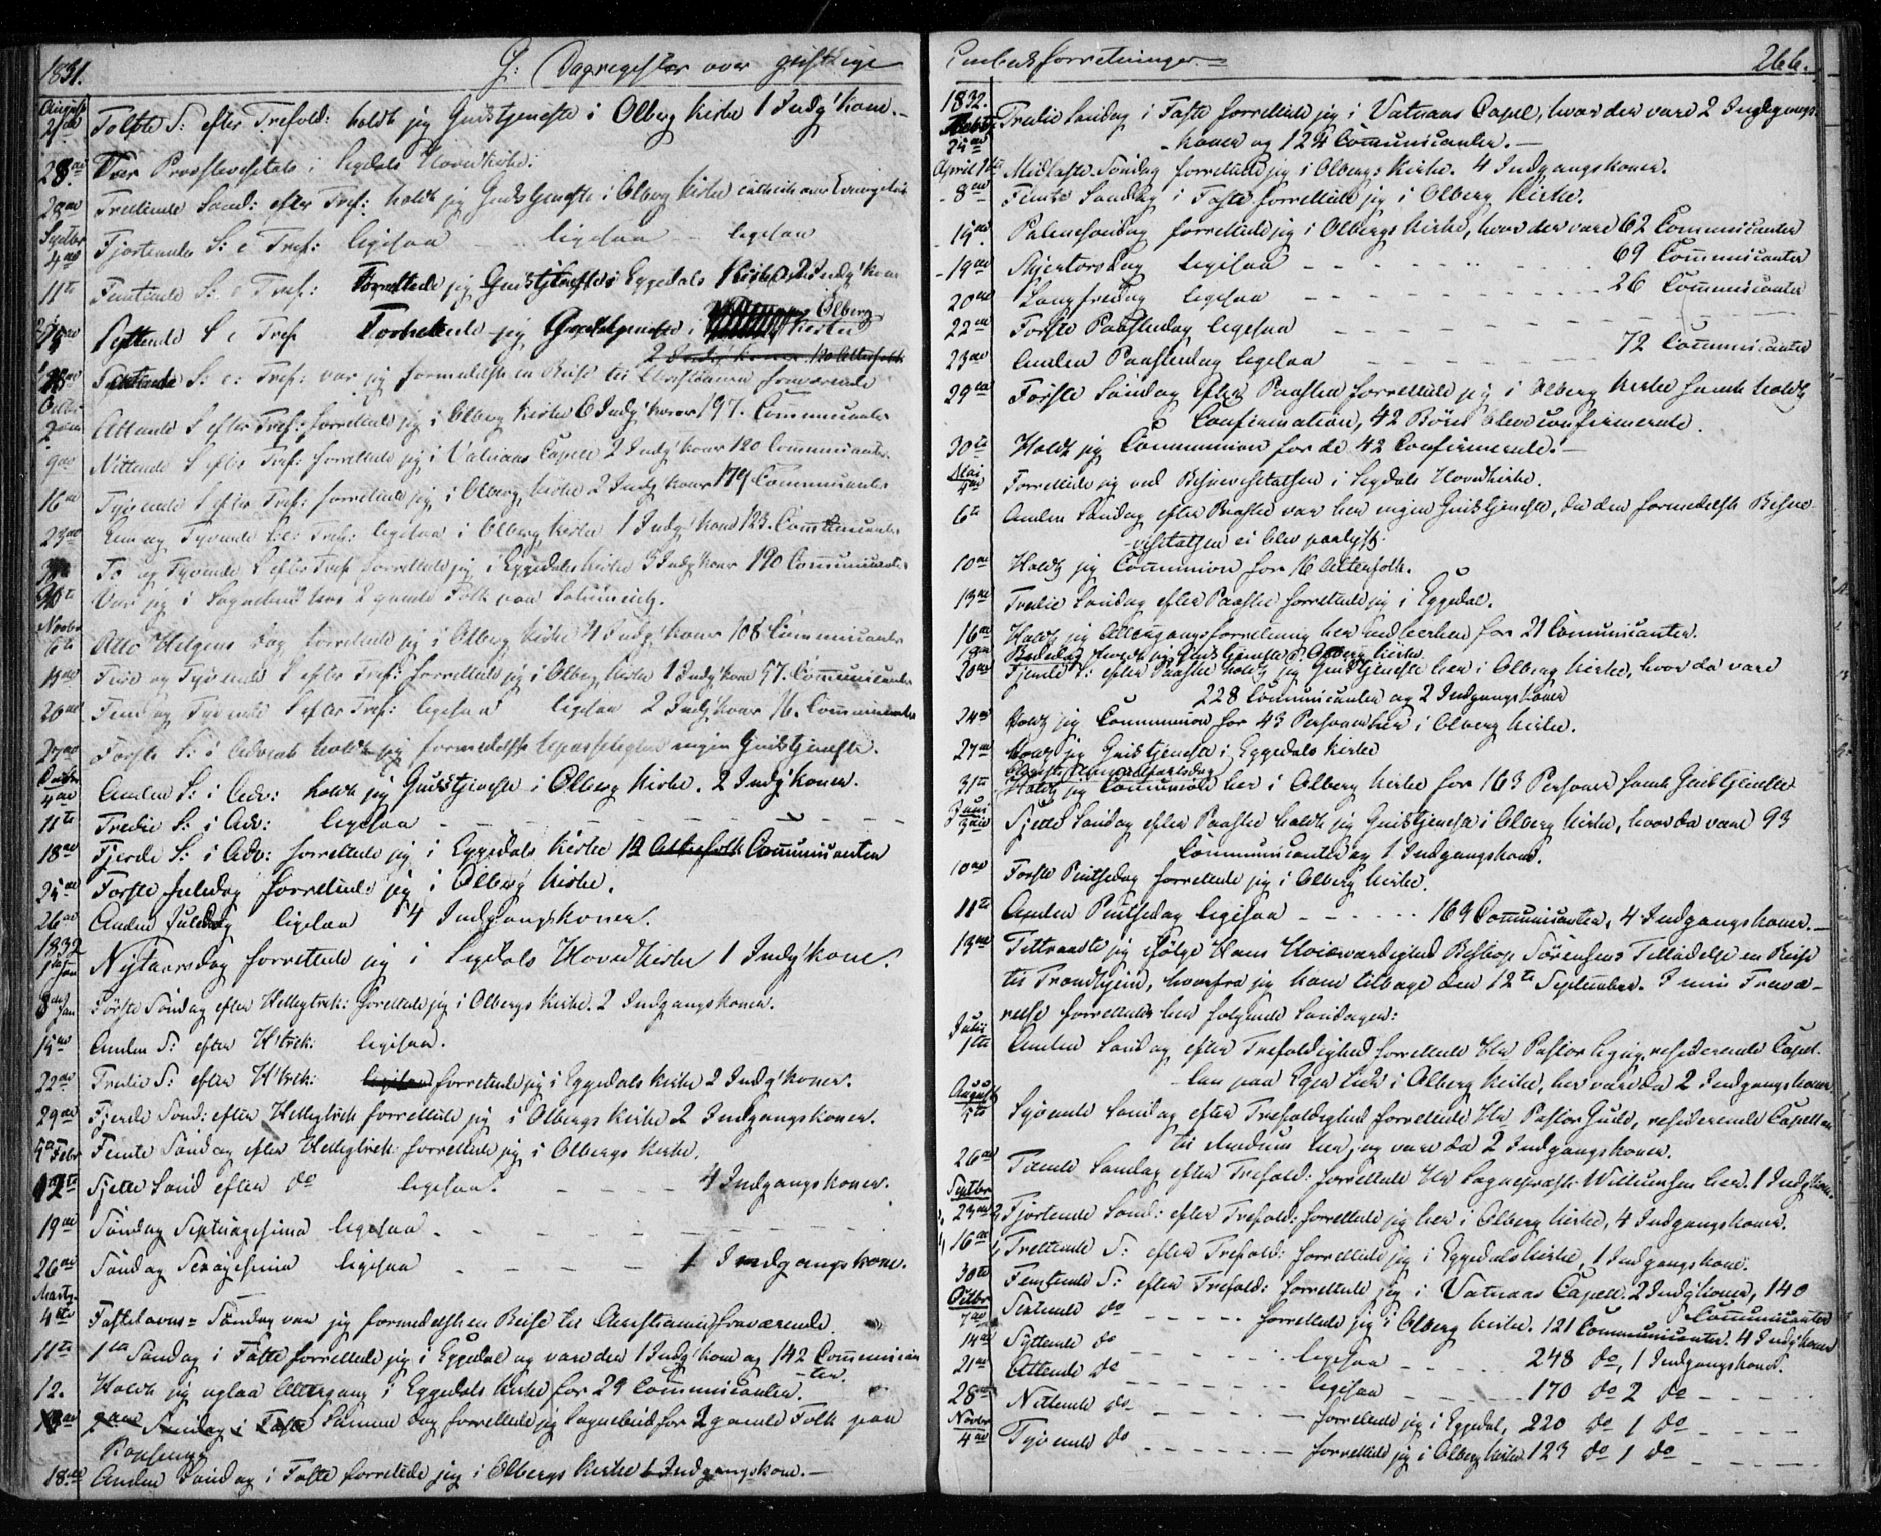 1831.
G: Dagregister over geistlige
August
21de Tolfte S: efter Trefold: holdt jeg Gudstjeneste i Olberg Kirke 1 Indg'kone.-
28de Var Provstevisitats i Sigdals Hovedkirke:
28de Trettende Sønd: efter Tref: holdt jeg Gudstjeneste i Olberg Kirke
Septbr
4de Fjortende S: e Tref: ligesaa ligesaa - ligesaa
11te Femtende S: e Tref: Forrettede jeg Gudstjeneste i Eggedals Kirke 2 Indg'kon
Syttende S e Tref Forrettede jeg Gudstjeneste i Olberg Kirke
S: e: Tref: var jeg formedelst en Reise til Christiania fraværende
Octbr
2den Attende S efter Tref: forrettede jeg i Olberg Kirke 6 Indg'koner 197. Communicanter
9de Nittende S efter Tref: forrettede jeg i Vatnaas Capell 2 Indg'koner 120 Communicanter
16de Tyvende S efter Tref: forrettede jeg i Olberg Kirke 2 Indg'koner 179 Communicanter
23de En og Tyvende S: e: Tref: ligesaa i Olberg Kirke 1 Indg'kone 123. Communicanter
To og Tyvende S efter Tref forrettede jeg i Eggedals Kirke 3 Indg'koner 190 Communicanter
Var jeg i Sognebud hos 2 gamle Folk paa
Novbr
6te Alle Helgens Dag forrettede jeg i Olberg Kirke 4 Indg'koner 108 Communicanter
Tre og Tyvende S efter Tref: forrettede jeg i Olberg Kirke 1 Indg'kone 57. Communicanter
20de Fem og Tyvende S efter Tref: ligesaa ligesaa 2 Indg'koner 76. Communicanter
27de Første S: i Advent holdt jeg formedelst Upasselighed ingen Gudstjeneste.
Decbr
4de Anden S: i Adv: holdt jeg Gudstjeneste i Olberg Kirke. 2 Indg'koner.
11te Tredie S: i Adv: ligesaa - - - - - - - -
18de Fjerde S: i Adv: forrettede jeg i Eggedals Kirke 12 Altersfolk Communicanter
25de Første Juledag forrettede jeg i Olberg Kirke.
26de Anden Juledag ligesaa 4 Indgangskoner.
1832
1ste Jan Nytaarsdag forrettede jeg i Sigdals Hovedkirke 1 Indg'kone.
8de Jan Første Søndag efter Helligtrek: forrettede jeg i Olbergs Kirke. 2 Indgangskoner.
15de Anden S: efter H'trek: ligesaa.
22de Tredie S: efter H'trek: ligesaa forrettede jeg i Eggedals Kirke 2 Indg'koner.
29de Fjerde Sønd: efter Helligtrek forrettede jeg i Olbergs Kirke 2 Indgangskoner.
5te Febr Femte Søndag efter Helligtrek: forrettede jeg i Olbergs Kirke.
12te Sjette Sønd efter do ligesaa. - - - - 4 Indgangskoner.
19de Søndag Septuagesima ligesaa - - - - - - -
26de Søndag Sexagesima ligesaa - - - - 1 Indgangskone.
Marts
4de Fastelavns- Søndag var jeg formedelst en Reise til Christiania fraværende.
11te 1ste Søndag i Faste forrettede jeg i Eggedal og vare der 1 Indg'kone og 142 Communican
-ter.
12. Holdt jeg ogsaa Altergang i Eggedals Kirke for 29 Communicanter.
Søndag i Faste Samme Dag forrettede jeg Sognebud for 2 gamle Folk paa
18de Anden Søndag i Faste forrettede jeg i Olbergs Kirke 1 Indgangskone.-
Embedsforretninger
266.
1832.
Marts
25de Tredie Søndag i Faste forrettede jeg i Vatnaas Capel, hvor der vare 2 Indgangs-
-koner og 124 Communicanter.-
April 1ste Midfaste Søndag forrettede jeg i Olbergs Kirke. 4 Indgangskoner.
- 8de Femte Søndag i Faste forrettede jeg i Olberg Kirke.
- 15de Palmesøndag forrettede jeg i Olbergs Kirke, hvor der vare 62 Communicanter
- 19de Skjertorsdag ligesaa - - - - - - 69 Communicanter
20de Langfredag ligesaa - - - - - - 26 Communicanter
22de Første Paaskedag ligesaa - - - - - - - -
23de Anden Paaskedag ligesaa - - - 72 Communicanter
29de Første Søndag efter Paaske forrettede jeg i Olberg Kirke samt holdt
Confirmation, 42 Børn bleve confirmerede.
30te Holdt jeg Communion for de 42 Confirmerede.-
Mai
4de Forrettede jeg ved Bispevisitatsen i Sigdals Hovedkirke.
6te Anden Søndag efter Paaske var her ingen Gudstjeneste, da den formedelst Bispe
-visitatsen ei blev paalyst.
10de Holdt jeg Communion for 16 Altersfolk.
13de Tredie Søndag efter Paaske forrettede jeg i Eggedal.
16de Holdt jeg Altergangsforretning her ved Kirken for 21 Communicanter.
18de Bededag holdt jeg Gudstjeneste i Olberg Kirke
20de Fjerde S: efter Paaske holdt jeg Gudstjeneste her i Olberg Kirke, hvor da vare
228 Communicanter og 2 Indgangskoner
24de Holdt jeg Communion for 43 Personer her i Olberg Kirke.
27de Holdt jeg Gudstjeneste i Eggedals Kirke
Christi Himmelfartsdag
31te Holdt jeg Communion her i Olberg Kirke for 163 Personer samt Gudstjeneste
Juni
3die Sjette Søndag efter Paaske holdt jeg Gudstjeneste i Olberg Kirke, hvor da vare 93
Communicanter og 1 Indgangskone.
10de Første Pintsedag forrettede jeg i Olberg Kirke.
11te Anden Pintsedag ligesaa - - - - - 169 Communicanter, 4 Indgangskoner.-
13de Tiltraadte jeg ifølge Hans Høiærværdighed Biskop Sørensens Tilladelse en Reise
til Trondhjem, hvorfra jeg kom tilbage den 12te September. I min Fravæ-
relse forrettedes her følgende Søndager:
Julii
1ste Anden Søndag efter Trefoldighed forrettede Hr Pastor residerende Capel-
-lan paa Eger her i Olberg Kirke, her vare da 2 Indgangskoner
August
5te Syvende Søndag efter Trefoldighed forrettede Hr Pastor Gude, residerende Capellan
til Modum her, og vare da 2 Indgangskoner.
26de Tiende Søndag efter Trefold: forrettede Hr Sognepræst Willumsen her. 1 Indg'kone
Septbr
23de Fjortende Sønd: efter Trefold: forrettede jeg her i Olberg Kirke, 4 Indgangskoner.
16de Trettende S: efter Trefold: forrettede jeg i Eggedals Kirke, 1 Indgangskone.
30te Femtende S: efter Trefold: forrettede jeg i Vatnaas Capell. 2 Indg'koner, 140
Communicanter
Octbr
7de Sextende do - - - - - forrettede jeg i Olberg Kirke. 121 Communicanter. 4 Indg'koner
14de Syttende do - - - - - ligesaa - - - - 248 do, 1 Indgangskone.
21de Attende do - - - - - ligesaa - - - - 170 do 2 do - - - -
28de Nittende do - - - - - forrettede jeg i Eggedal, 220 do 1 do - - - -
Novbr
4de Tyvende do - - - - - forrettede jeg i Olberg Kirke 123 do 1 do - - - -